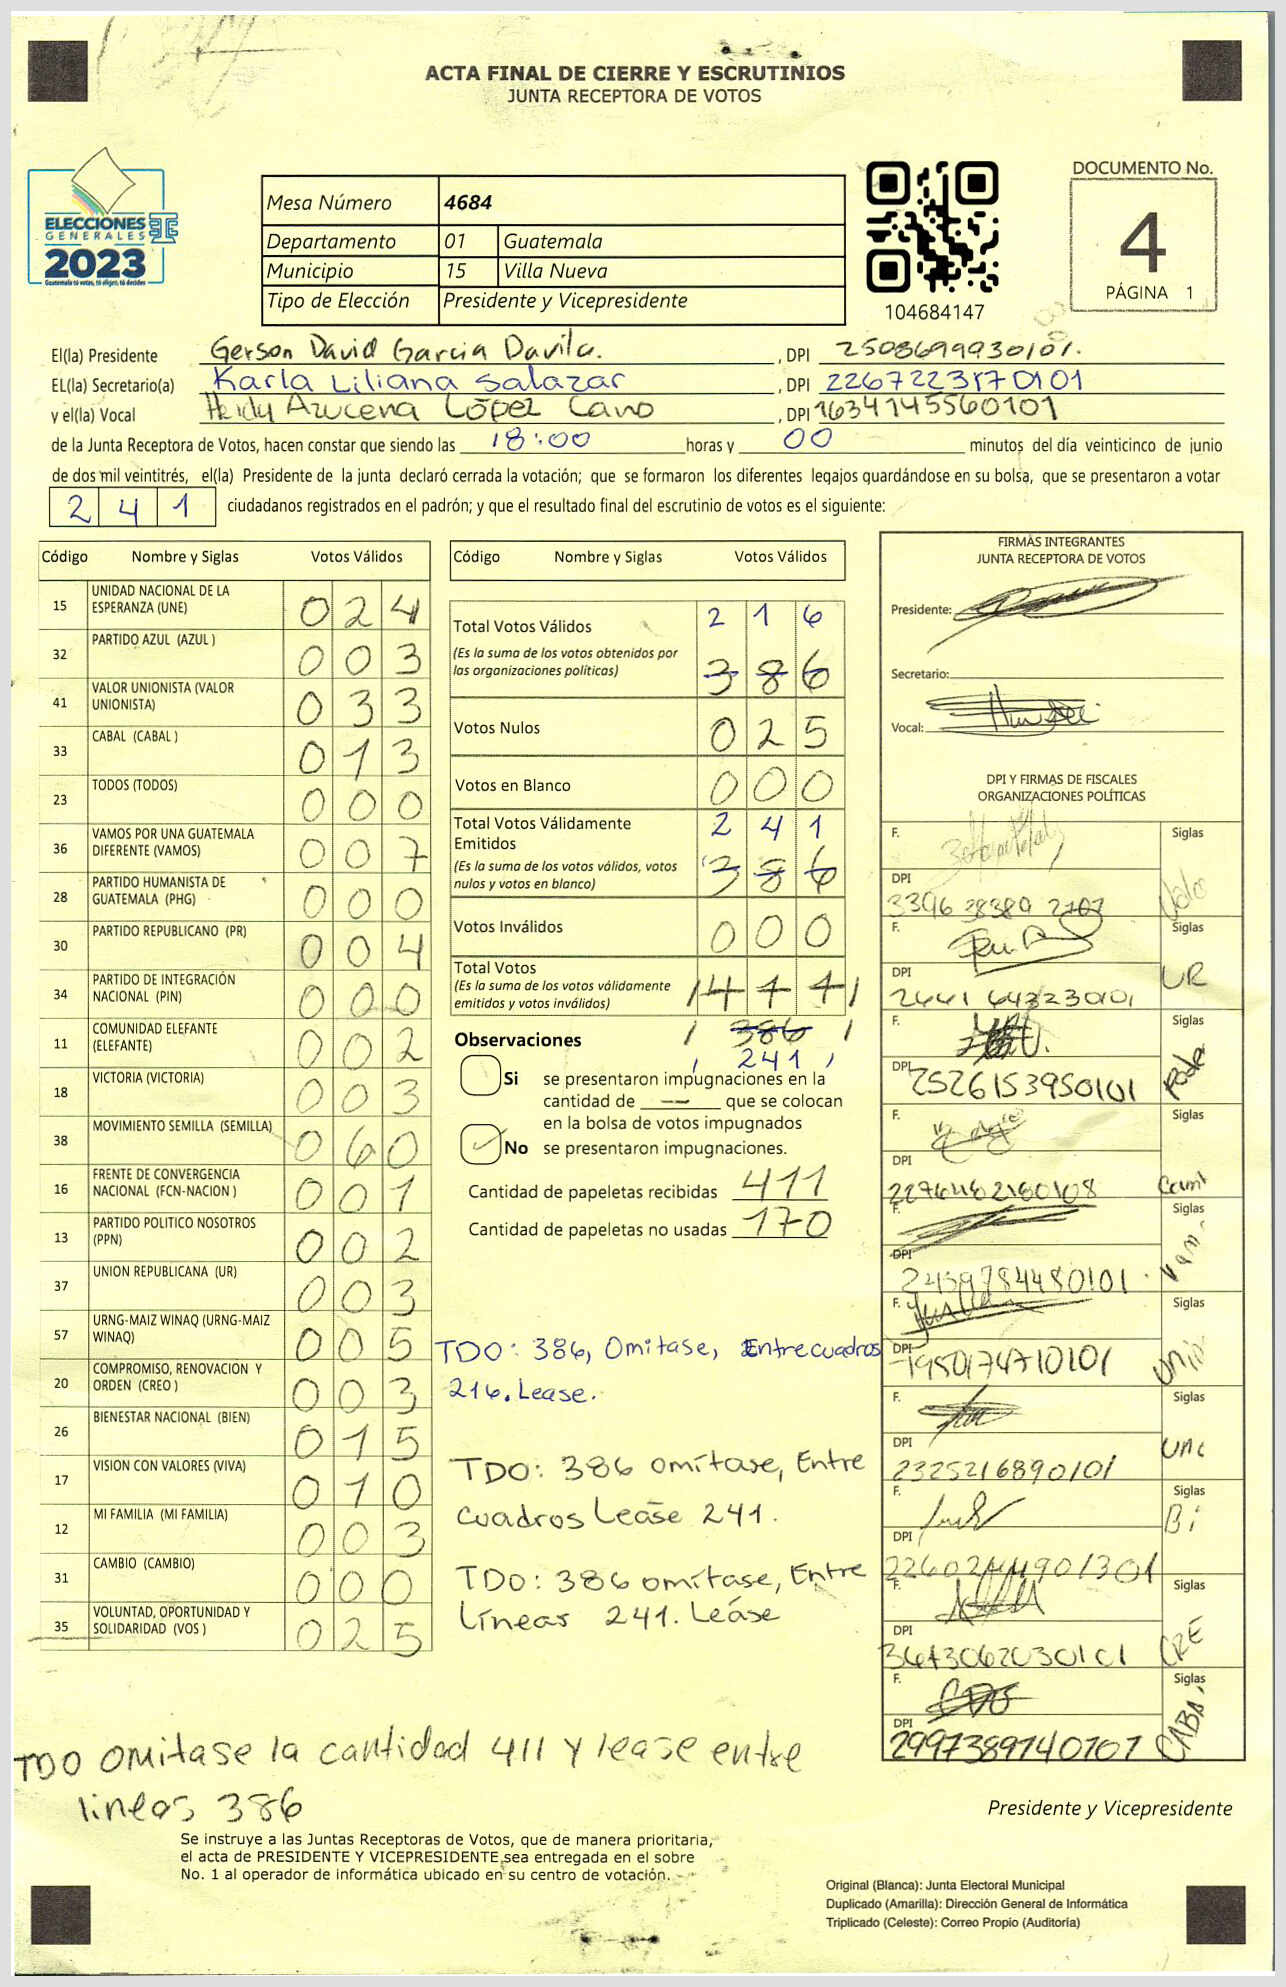 ACTA FINAL DE CIERRE Y ESCRUTINIOS
JUNTA RECEPTORA DE VOTOS
ELECCIONES
GENERALES
2023
Guatemala tú votas, tú eliges, tú decides
Mesa Número 4684
Departamento 01 Guatemala
Municipio 15 Villa Nueva
Tipo de Elección Presidente y Vicepresidente
104684147
DOCUMENTO No.
4
PÁGINA 1
El(la) Presidente Gerson David Garcia Davila. , DPI 2508699930101.
EL(la) Secretario(a) Karla Liliana Salazar , DPI 2267223170101
y el(la) Vocal Heidy Azucena López Cano , DPI 1634145560101
de la Junta Receptora de Votos, hacen constar que siendo las 18:00 horas y 00 minutos del día veinticinco de junio
de dos mil veintitrés, el(la) Presidente de la junta declaró cerrada la votación; que se formaron los diferentes legajos guardándose en su bolsa, que se presentaron a votar
241 ciudadanos registrados en el padrón; y que el resultado final del escrutinio de votos es el siguiente:
Código Nombre y Siglas Votos Válidos
15 UNIDAD NACIONAL DE LA ESPERANZA (UNE) 024
32 PARTIDO AZUL (AZUL ) 003
41 VALOR UNIONISTA (VALOR UNIONISTA) 033
33 CABAL (CABAL ) 013
23 TODOS (TODOS) 000
36 VAMOS POR UNA GUATEMALA DIFERENTE (VAMOS) 007
28 PARTIDO HUMANISTA DE GUATEMALA (PHG) 000
30 PARTIDO REPUBLICANO (PR) 004
34 PARTIDO DE INTEGRACIÓN NACIONAL (PIN) 000
11 COMUNIDAD ELEFANTE (ELEFANTE) 002
18 VICTORIA (VICTORIA) 003
38 MOVIMIENTO SEMILLA (SEMILLA) 060
16 FRENTE DE CONVERGENCIA NACIONAL (FCN-NACION ) 001
13 PARTIDO POLITICO NOSOTROS (PPN) 002
37 UNION REPUBLICANA (UR) 003
57 URNG-MAIZ WINAQ (URNG-MAIZ WINAQ) 005
20 COMPROMISO, RENOVACION Y ORDEN (CREO ) 003
26 BIENESTAR NACIONAL (BIEN) 015
17 VISION CON VALORES (VIVA) 010
12 MI FAMILIA (MI FAMILIA) 003
31 CAMBIO (CAMBIO) 000
35 VOLUNTAD, OPORTUNIDAD Y SOLIDARIDAD (VOS ) 025
Código Nombre y Siglas Votos Válidos
Total Votos Válidos 216
(Es la suma de los votos obtenidos por las organizaciones políticas) 386
Votos Nulos 025
Votos en Blanco 000
Total Votos Válidamente Emitidos 241
(Es la suma de los votos válidos, votos nulos y votos en blanco) 386
Votos Inválidos 000
Total Votos
(Es la suma de los votos válidamente emitidos y votos inválidos) 411
386
241
Observaciones
Si se presentaron impugnaciones en la
cantidad de — que se colocan
en la bolsa de votos impugnados
No se presentaron impugnaciones.
Cantidad de papeletas recibidas 411
Cantidad de papeletas no usadas 170
TDO: 386, Omitase, Entre cuadros
216. Lease.
TDO: 386 omítase, Entre
cuadros Lease 241.
TDO: 386 omítase, Entre
líneas 241. Leáse
TDO Omitase la cantidad 411 y lease entre
lineas 386
FIRMAS INTEGRANTES
JUNTA RECEPTORA DE VOTOS
Presidente:
Secretario:
Vocal:
DPI Y FIRMAS DE FISCALES
ORGANIZACIONES POLÍTICAS
F. Siglas
DPI 3396 28389 2707
F. Siglas UR
DPI 2441 64323 0101
F. Siglas
DPI 2526153950101
F. Siglas
DPI 2276462160108
F. Siglas
DPI 2459784480101
F. Siglas
DPI 1950174710101
F. Siglas
DPI 2325216890101
F. Siglas Bi
DPI
F. Siglas CRE
DPI 3673062030101
F. Siglas CABA
DPI 2997389140101
Presidente y Vicepresidente
Se instruye a las Juntas Receptoras de Votos, que de manera prioritaria,
el acta de PRESIDENTE Y VICEPRESIDENTE sea entregada en el sobre
No. 1 al operador de informática ubicado en su centro de votación.
Original (Blanca): Junta Electoral Municipal
Duplicado (Amarilla): Dirección General de Informática
Triplicado (Celeste): Correo Propio (Auditoría)